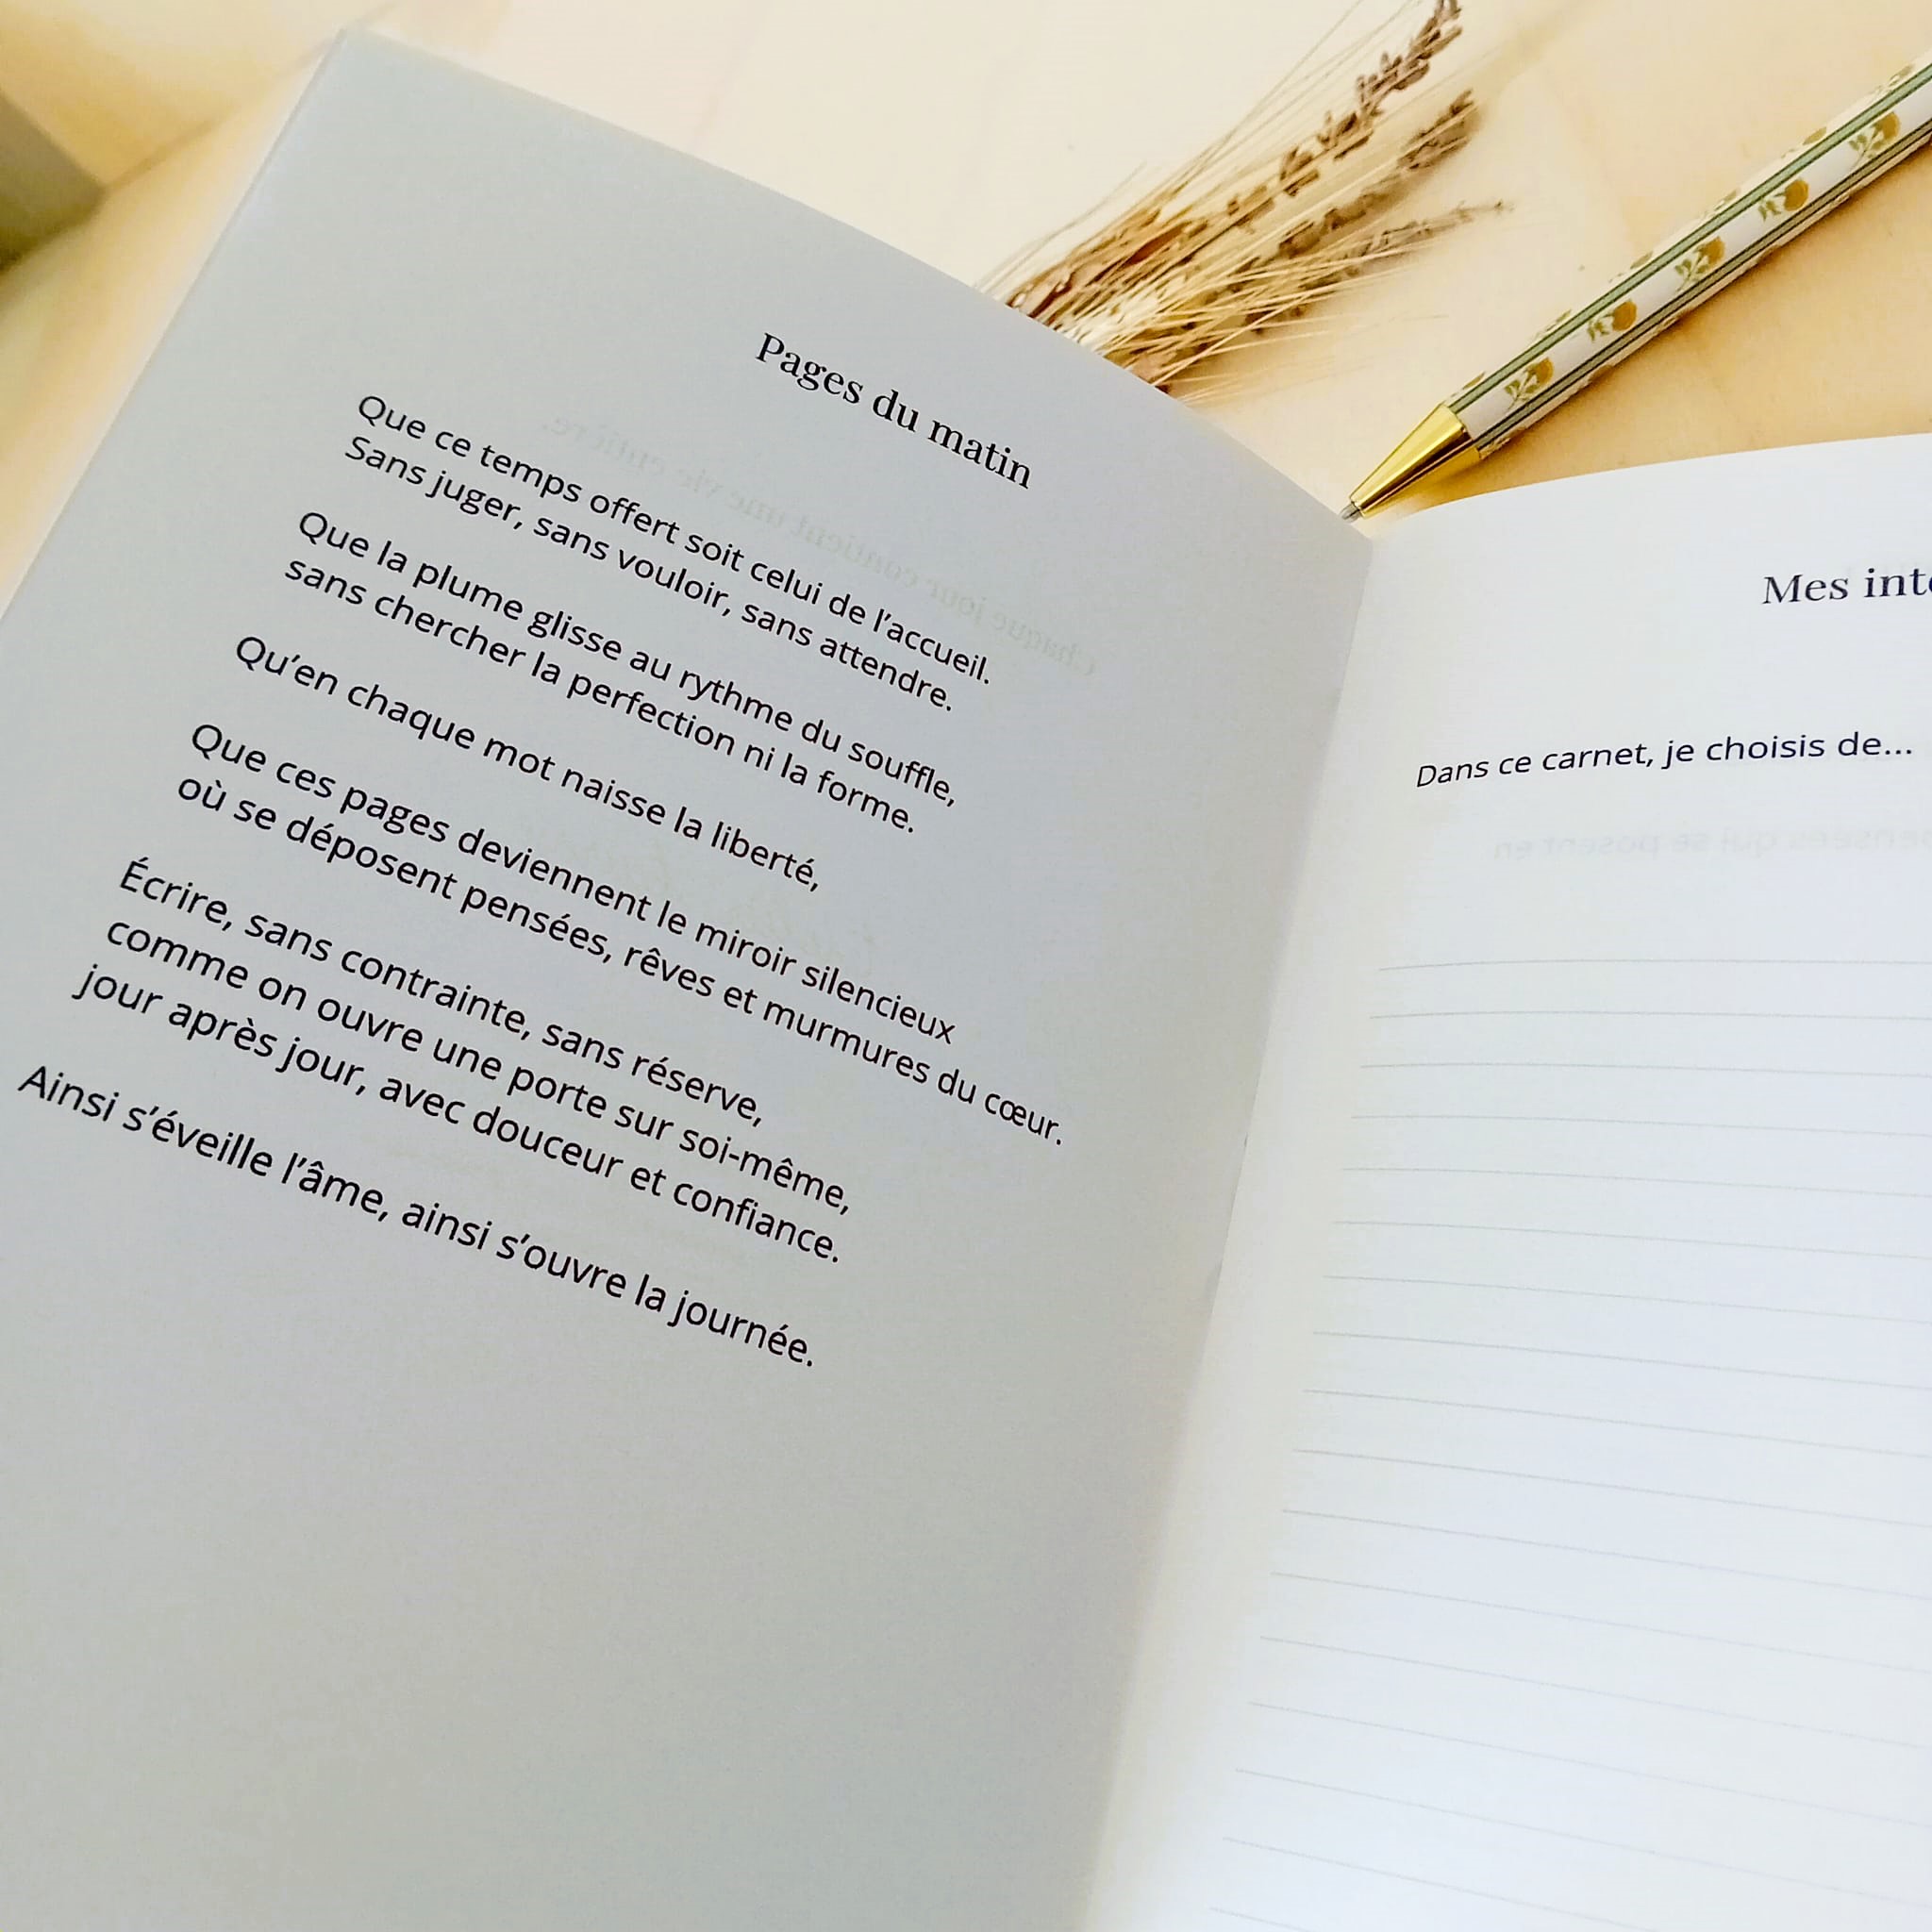 Pages du matin
Que ce temps offert soit celui de l’accueil.
Sans juger, sans vouloir, sans attendre.
Que la plume glisse au rythme du souffle,
sans chercher la perfection ni la forme.
Qu’en chaque mot naisse la liberté,
Que ces pages deviennent le miroir silencieux
où se déposent pensées, rêves et murmures du cœur.
Écrire, sans contrainte, sans réserve,
comme on ouvre une porte sur soi-même,
jour après jour, avec douceur et confiance.
Ainsi s’éveille l’âme, ainsi s’ouvre la journée.
Mes
Dans ce carnet, je choisis de...